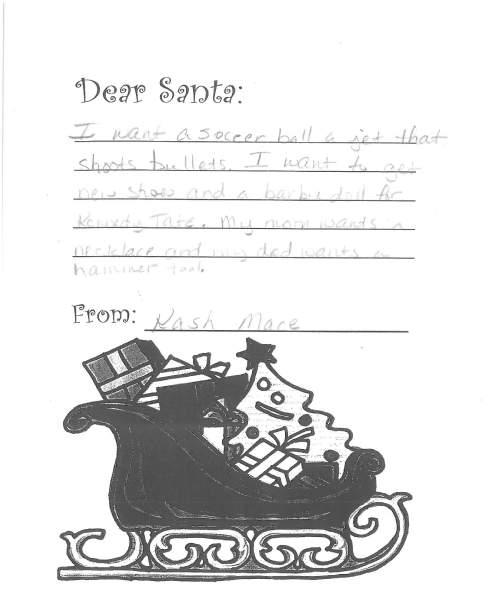 Dear Santa:
I want a soccer ball a jet that
shoots bullets. I want to get
new shoes and a barby doll for
Kennedy Tate. My mom wants a
necklace and my dad wants a
hammer tool.
From: Kash Mace